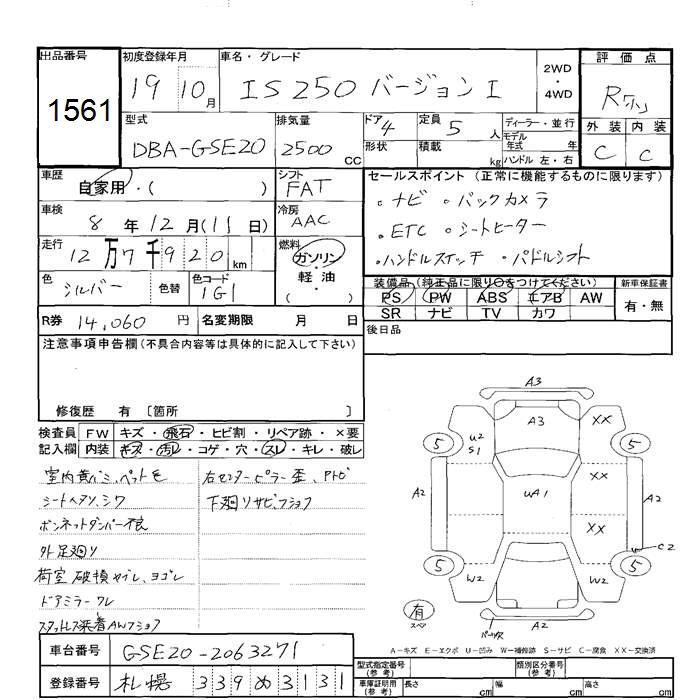 出品番号
1561
初度登録年月
19 10月
車名・グレード
IS250 バージョンI
2WD
・
4WD
評価点
R
外装 内装
C C
型式
DBA-GSE20
排気量
2500cc
ドア 4
形状
定員 5人
積載 kg
ディーラー・並行
モデル年式 年
ハンドル 左・右
車歴
自家用・( )
シフト
FAT
車検
8年12月(11日)
冷房
AAC
走行
12万7千920km
燃料
ガソリン
・
軽油
( )
色
シルバー
色替
色コード
1G1
R券 14,060円
名変期限 月 日
セールスポイント(正常に機能するものに限ります)
・ナビ ・バックカメラ
・ETC ・シートヒーター
・ハンドルスイッチ ・パドルシフト
装備品(純正品に限り○をつけてください)
新車保証書
PS PW ABS エアB AW
SR ナビ TV カワ
有・無
後日品
注意事項申告欄(不具合内容等は具体的に記入して下さい)
修復歴 有〔箇所 〕
検査員記入欄
FW キズ・飛石・ヒビ割・リペア跡・×要
内装 キズ・汚レ・コゲ・穴・スレ・キレ・破レ
室内黄バミ、ペット毛
シートヘタリ、シワ
ボンネットダンパー不良
外足廻り
荷室破損ヤブレ、ヨゴレ
ドアミラーワレ
スタットレス装着AWフショク
右センターピラー歪、アトビ
下廻りサビ、フショク
A3
A3
XX
U2
S1
5
5
XX
A2
UA1
A2
XX
C2
5
5
W2
W2
A2
有
スペア
A-キズ E-エクボ U-凹み W-補修跡 S-サビ C-腐食 XX-交換済
車台番号 GSE20-2063271
登録番号 札幌 339 め 3131
型式指定番号(参考)
類別区分番号(参考)
車庫証明用(参考)
長さ cm
幅 cm
高さ cm